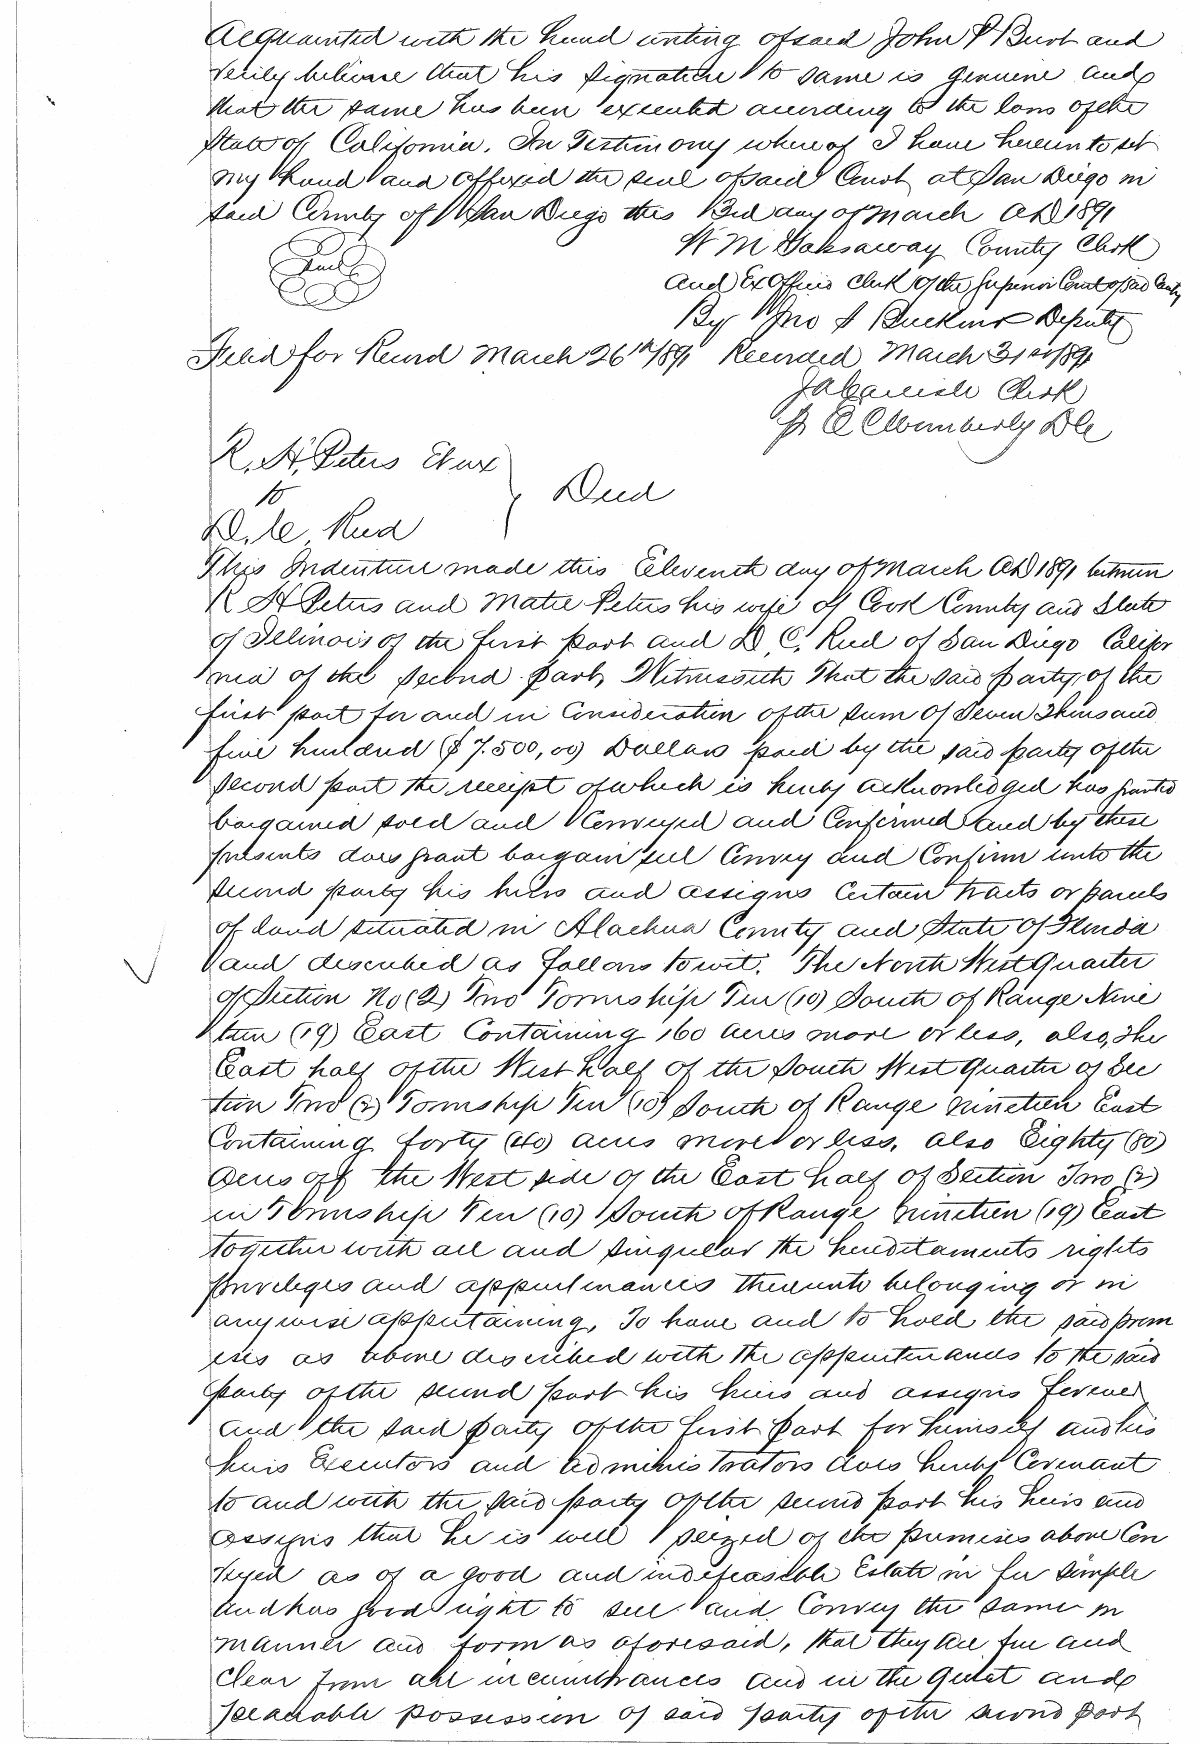 Acquainted with the hand writing of said John P Burt and
verily believe that his signature to same is genuine and
that the same has been executed according to the laws of the
State of California. In Testimony where of I have hereunto set
my hand and affixed the seal of said Court at San Diego in
said County of San Diego this 3rd day of March AD 1891
W M Gassaway County Clerk
and Ex Officio Clerk of the Superior Court of said County
Seal
By Jno F Deputy
Filed for Record March 26th 1891 Recorded March 31st 1891
J A Carlisle Clerk
pr Wimberly D.C.
R. H. Peters Et ux
to
D. C. Reed
Deed
This Indenture made this Eleventh day of March AD 1891 between
R H Peters and Matie Peters his wife of Cook County and State
of Illinois of the first part and D. C. Reed of San Diego Califor
nia of the second part, Witnesseth That the said party of the
first part for and in Consideration of the sum of Seven Thousand
five hundred ($7.500,00) Dollars paid by the said party of the
second part the receipt of which is hereby acknowledged has granted
bargained sold and Conveyed and Confirmed and by these
presents does grant bargain sell Convey and Confirm unto the
second party his heirs and assigns Certain tracts or parcels
of land situated in Alachua County and State of Florida
and described as follows to wit. The North West Quarter
of Section No (2) Two Township Ten (10) South of Range Nine
teen (19) East Containing 160 acres more or less, also, The
East half of the West half of the South West Quarter of Sec
tion Two (2) Township Ten (10) South of Range nineteen East
Containing forty (40) acres more or less. also Eighty (80)
acres off the West side of the East half of Section Two (2)
in Township Ten (10) South of Range nineteen (19) East
together with all and singular the hereditaments rights
priveleges and appurtenances thereunto belonging or in
anywise appertaining. To have and to hold the said prem
ises as above described with the appurtenances to the said
party of the second part his heirs and assigns forever
And the said party of the first part for himself and his
heirs Executors and administrators does hereby Covenant
to and with the said party of the second part his heirs and
assigns that he is well seized of the premises above Con
veyed as of a good and indefeasible Estate in fee simple
and has good right to sell and Convey the same in
manner and form as aforesaid, that they are free and
clear from all incumbrances and in the Quiet and
peaceable possession of said party of the second part